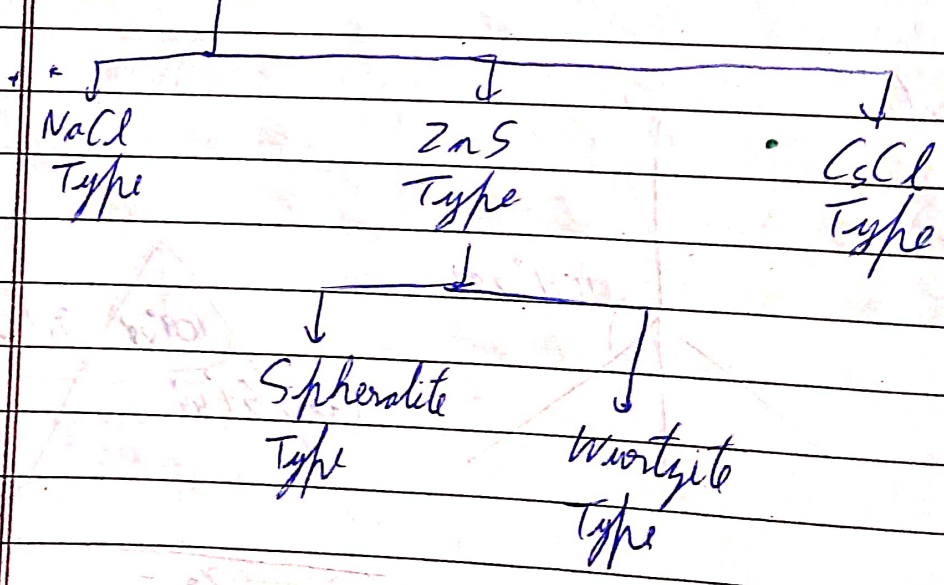 NaCl
Type
ZnS
Type
CsCl
Type
Spheralite
Type
Wurtzite
Type